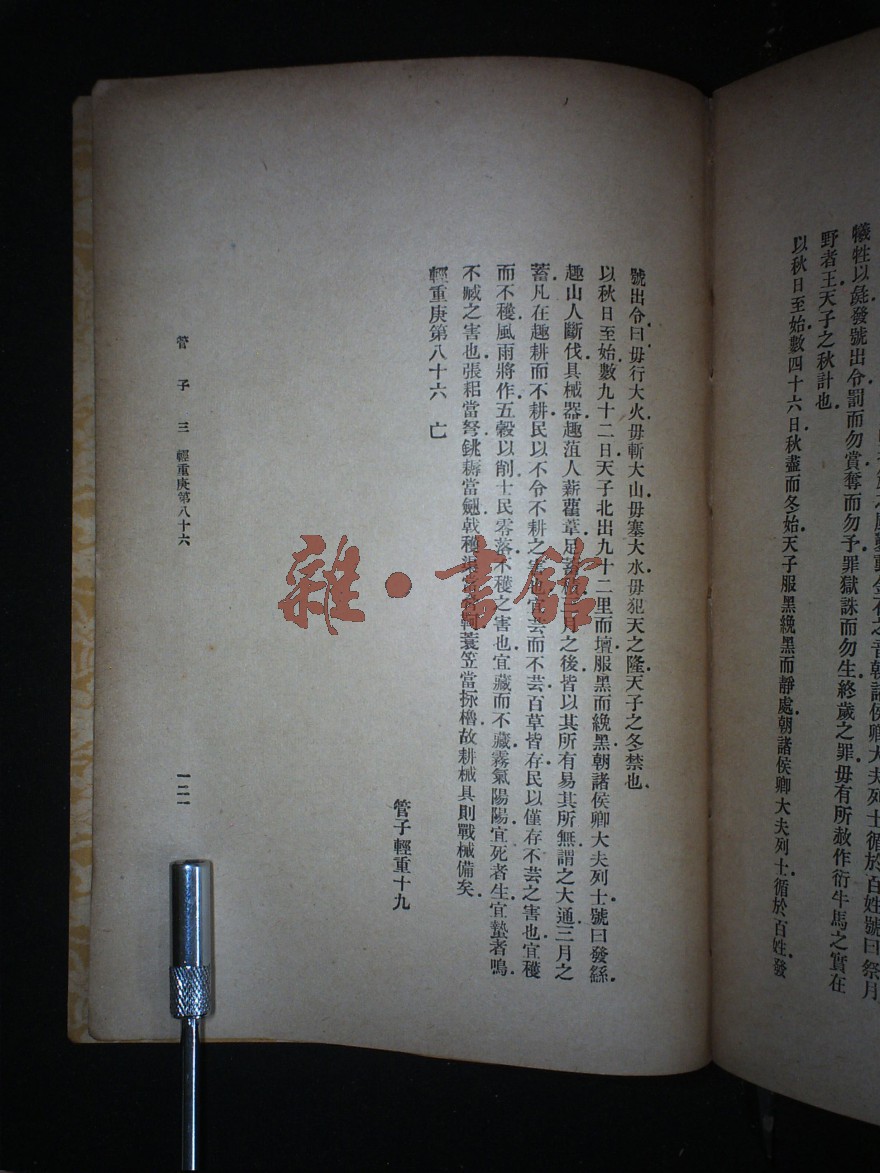 犧牲以彘發號出令罰而勿賞奪而勿予罪獄誅而勿生終歲之罪毋有所赦作衍牛馬之實在
野者王天子之秋計也
以秋日至始數四十六日秋盡而冬始天子服黑絻黑而靜處朝諸侯卿大夫列士循於百姓發
號出令曰毋行大火毋斬大山毋塞大水毋犯天之隆天子之冬禁也
以秋日至始數九十二日天子北出九十二里而壇服黑而絻黑朝諸侯卿大夫列士號曰發繇
趣山人斷伐具械器趣菹人薪雚葦足蓄積三月之後皆以其所有易其所無謂之大通三月之
蓄凡在趣耕而不耕民以不令不耕之害也宜芸而不芸百草皆存民以僅存不芸之害也宜穫
而不穫風雨將作五穀以削士民零落不穫之害也宜藏而不藏霧氣陽陽宜死者生宜蟄者鳴
不臧之害也張耜當弩銚耨當劒戟穫渠當蓑笠當櫓故耕械具則戰械備矣
輕重庚第八十六 亡
管子輕重十九
管子 三 輕重庚第八十六 一二一
雜·書館